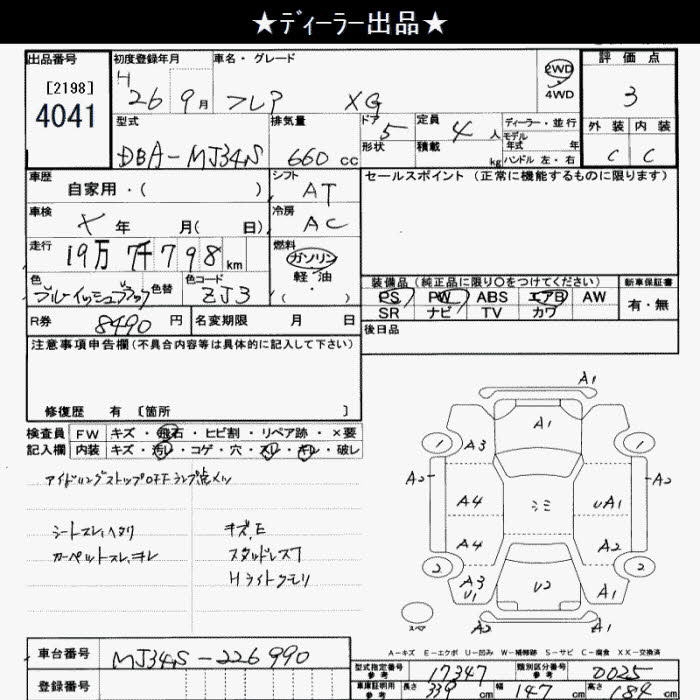 ★ディーラー出品★
出品番号 初度登録年月 車名・グレード 評価点
[2198] H 2WD
4041 26 9月 フレア XG 4WD 3
型式 排気量 ドア 5 定員 4人 ディーラー・並行 外装 内装
モデル年式 年
DBA-MJ34S 660cc 形状 積載 kg ハンドル 左・右 C C
車歴 シフト セールスポイント(正常に機能するものに限ります)
自家用・( ) AT
車検 冷房
メ 年 月( 日) AC
走行 燃料
19万 7千 798 km ガソリン
色 色替 色コード 軽・油 装備品(純正品に限り○をつけてください) 新車保証書
ブルーイッシュブラック ZJ3 ( ・ ) PS PW ABS エアB AW 有・無
SR ナビ TV カワ
R券 8490 円 名変期限 月 日 後日品
注意事項申告欄(不具合内容等は具体的に記入して下さい)
修復歴 有 [箇所 ]
検査員 FW キズ・飛石・ヒビ割・リペア跡・×要
記入欄 内装 キズ・汚レ・コゲ・穴・スレ・キレ・破レ
アイドリングストップOFFランプ点メツ
シートスレ、ヘタリ キズ、E
カーペットスレ、キレ スタッドレス7
Hライトクモリ
A1
A1
1 A3 1
A2 A2
A4 シミ UA1
A4 A2
2 A3 U2 A1 2
U1
スペア A2 A1
A-キズ E-エクボ U-凹み W-補修跡 S-サビ C-腐食 XX-交換済
車台番号 MJ34S-226990
登録番号
型式指定番号 参考 17347 類別区分番号 参考 D025
車庫証明用 参考 長さ 339 cm 幅 147 cm 高さ 189 cm